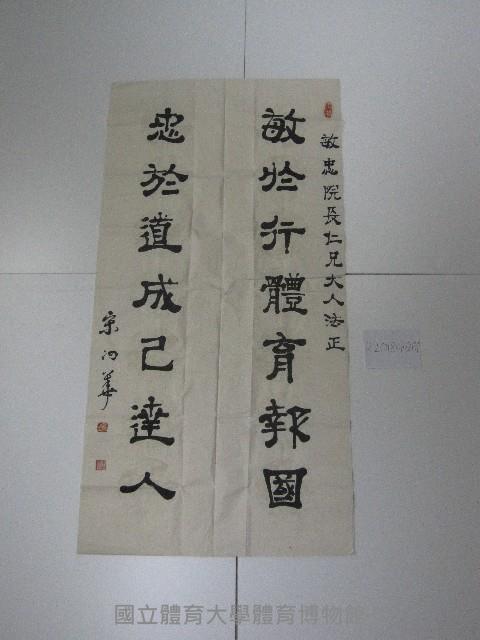 敏忠院長仁兄大人法正
敏於行體育報國
忠於道成己達人
國立體育大學體育博物館